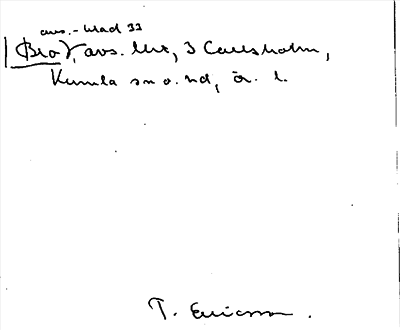 avs.-blad 33
Bro?, avs. lht, 3 Carlsholm,
Kumla sn o. hd, ör. l.
T. Ericsson.